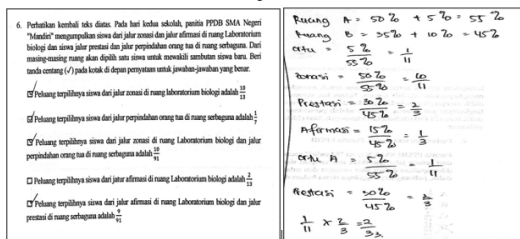 6. Perhatikan kembali teks diatas. Pada hari kedua sekolah, panitia PPDB SMA Negeri
"Mandiri" mengumpulkan siswa dari jalur zonasi dan jalur afirmasi di ruang Laboratorium
biologi dan siswa jalur prestasi dan jalur perpindahan orang tua di ruang serbaguna. Dari
masing-masing ruang akan dipilih satu siswa untuk mewakili sambutan siswa baru. Beri
tanda centang (✓) pada kotak di depan pernyataan untuk jawaban-jawaban yang benar.
☑ Peluang terpilihnya siswa dari jalur zonasi di ruang laboratorium biologi adalah 10/13
☑ Peluang terpilihnya siswa dari jalur perpindahan orang tua di ruang serbaguna adalah 1/7
☑ Peluang terpilihnya siswa dari jalur zonasi di ruang Laboratorium biologi dan jalur
perpindahan orang tua di ruang serbaguna adalah 10/91
☐ Peluang terpilihnya siswa dari jalur afirmasi di ruang Laboratorium biologi adalah 2/13
☑ Peluang terpilihnya siswa dari jalur afirmasi di ruang Laboratorium biologi dan jalur
prestasi di ruang serbaguna adalah 9/91
Ruang A = 50% + 5% = 55%
Ruang B = 35% + 10% = 45%
ortu = 5%/55% = 1/11
zonasi = 50%/55% = 10/11
Prestasi = 30%/45% = 2/3
Afirmasi = 15%/45% = 1/3
ortu A = 5%/55% = 1/11
Prestasi = 30%/45% = 2/3
1/11 × 2/3 = 2/33